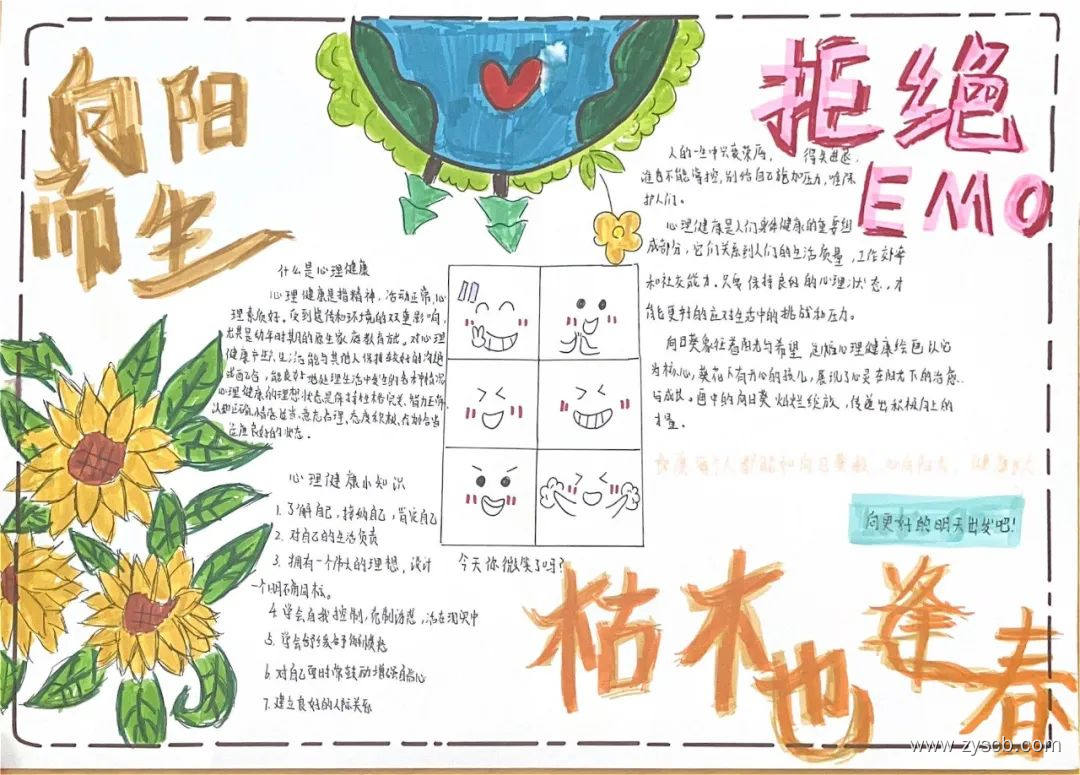 向阳
而生
拒绝
EMO
什么是心理健康
心理健康是指精神、活动正常、心
理素质好。受到遗传和环境的双重影响,
尤其是幼年时期的原生家庭教育
心理健康的理想状态是保持性格完美、智力正常、
认知正确、情感适当、意志合理、态度积极、
良好的状态。
心理健康小知识
1. 了解自己,接纳自己,肯定自己
2. 对自己的生活负责
3. 拥有一个伟大的理想,设计
一个明确目标。
4. 学会自我控制,克制诱惑,活在现实中
5. 学会舒缓
6. 对自己要时常鼓励增强自信心
7. 建立良好的人际关系
今天你微笑了吗?
人的一生中兴衰荣辱, 得失进退,
谁也不能掌控,别给自己施加压力,
心理健康是人们身体健康的重要组
成部分,它们关系到人们的生活质量,工作效率
和社交能力,只有保持良好的心理状态,才
能更好的应对生活中的挑战和压力。
向日葵象征着阳光与希望
为核心,葵花下有开心的孩儿,展现了心灵在阳光下的治愈
与成长。画中的向日葵灿烂绽放,传递出积极向上的
力量。
向更好的明天出发吧!
枯木也逢春
www.zyscb.com